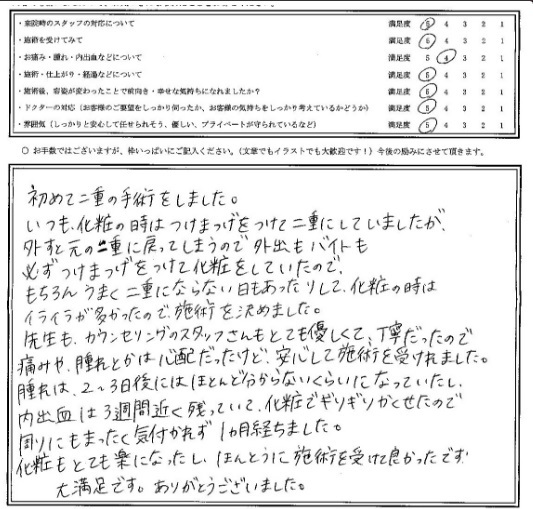 ・来院時のスタッフの対応について 満足度 5 4 3 2 1
・施術を受けてみて 満足度 5 4 3 2 1
・お痛み・腫れ・内出血などについて 満足度 5 4 3 2 1
・施術・仕上がり・経過などについて 満足度 5 4 3 2 1
・施術後、容姿が変わったことで前向き・幸せな気持ちになれましたか？ 満足度 5 4 3 2 1
・ドクターの対応（お客様のご要望をしっかり伺ったか、お客様の気持ちをしっかり考えているかどうか） 満足度 5 4 3 2 1
・雰囲気（しっかりと安心して任せられそう、優しい、プライベートが守られているなど） 満足度 5 4 3 2 1
○ お手数ではございますが、枠いっぱいにご記入ください。（文章でもイラストでも大歓迎です！）今後の励みにさせて頂きます。
初めて二重の手術をしました。
いつも、化粧の時はつけまつげをつけて二重にしていましたが、
外すと元の一重に戻ってしまうので外出もバイトも
必ずつけまつげをつけて化粧をしていたので、
もちろんうまく二重にならない日もあったりして、化粧の時は
イライラが多かったので施術を決めました。
先生も、カウンセリングのスタッフさんもとても優しくて、丁寧だったので
痛みや、腫れとかは心配だったけど、安心して施術を受けれました。
腫れは、2〜3日後にはほとんど分からないくらいになっていたし、
内出血は3週間近く残っていて、化粧でギリギリかくせたので
周りにもまったく気付かれず1ヵ月経ちました。
化粧もとても楽になったし、ほんとうに施術を受けて良かったです
大満足です。ありがとうございました。